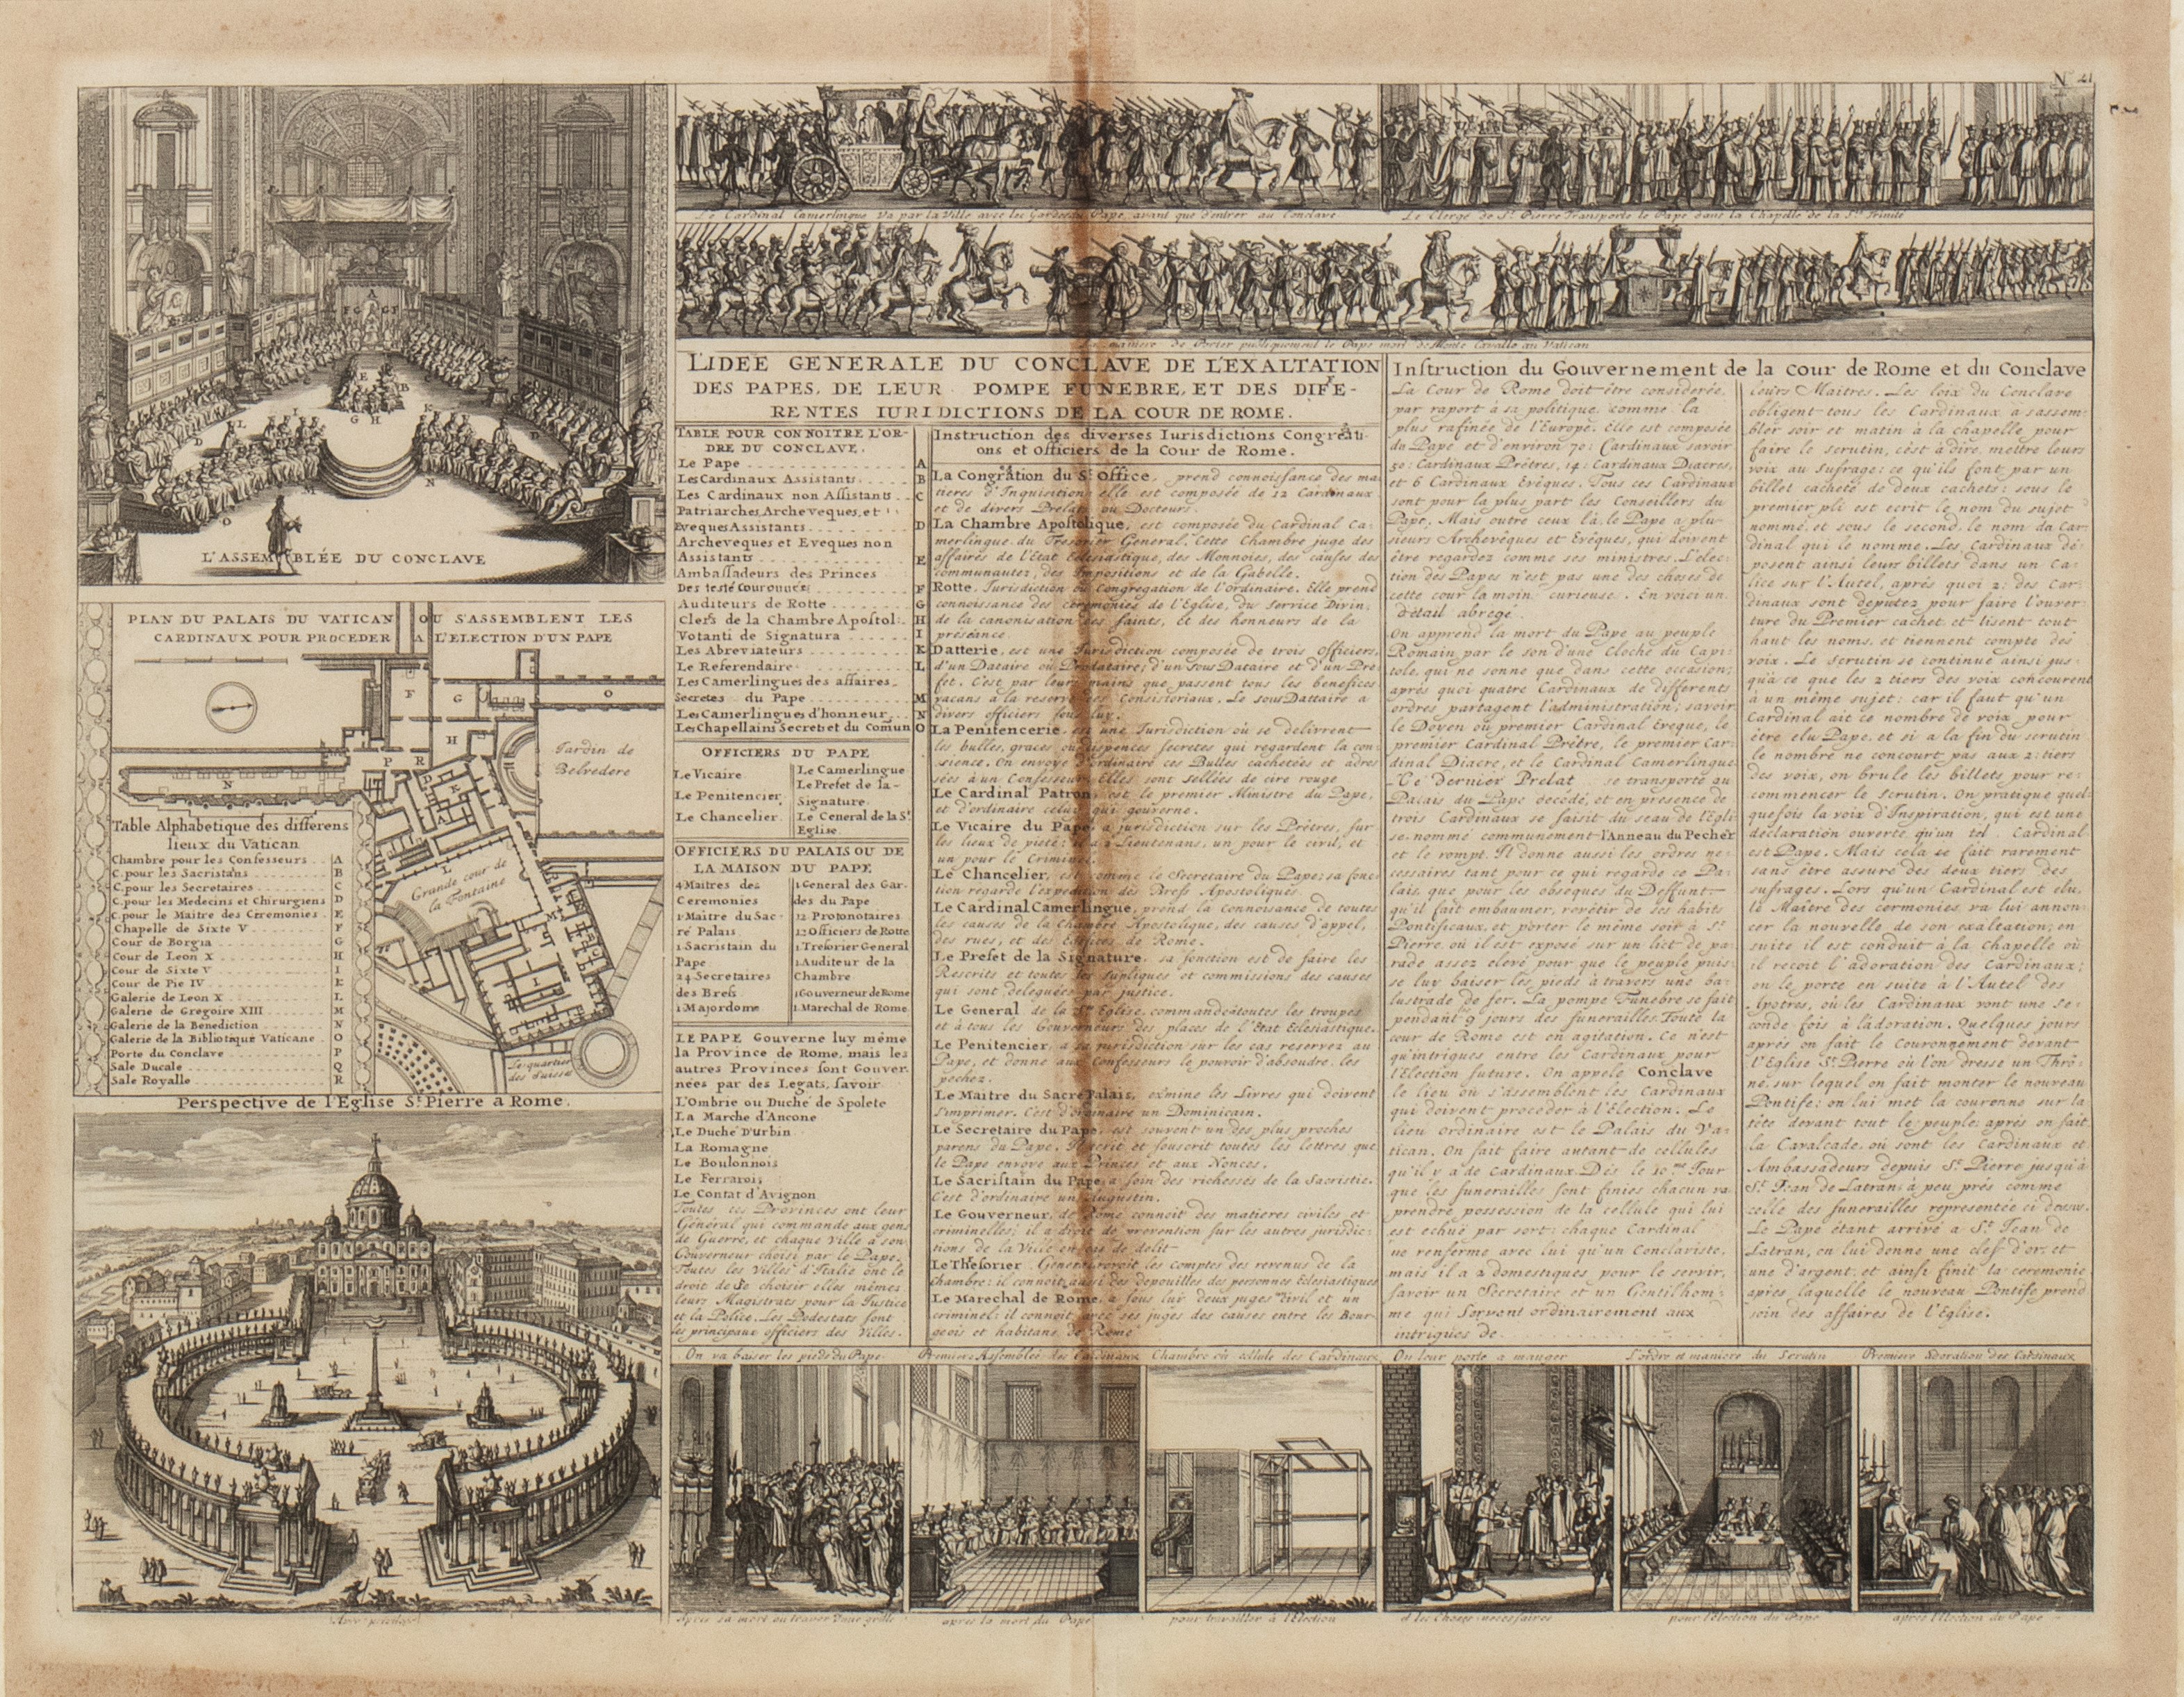 N° 21
Le Cardinal Camerlingue Va par la Ville avec les Gardes du Pape, avant que d'entrer au Conclave
Le Clergé de St. Pierre Transporte le Pape dans la Chapelle de la Ste. Trinité
La maniere de Porter publiquement le Pape mort de Monte Cavallo au Vatican
L'ASSEMBLÉE DU CONCLAVE
PLAN DU PALAIS DU VATICAN OU S'ASSEMBLENT LES
CARDINAUX POUR PROCEDER A L'ELECTION D'UN PAPE
Jardin de
Belvedere
Grande cour de
la Fontaine
Le quartier
des Suisses
Table Alphabetique des differens
lieux du Vatican
Chambre pour les Confesseurs A
C. pour les Sacristans B
C. pour les Secretaires C
C. pour les Medecins et Chirurgiens D
C. pour le Maitre des Ceremonies E
Chapelle de Sixte V F
Cour de Borgia G
Cour de Leon X H
Cour de Sixte V I
Cour de Pie IV K
Galerie de Leon X L
Galerie de Gregoire XIII M
Galerie de la Benediction N
Galerie de la Bibliotique Vaticane O
Porte du Conclave P
Sale Ducale Q
Sale Royalle R
Perspective de l'Eglise St. Pierre a Rome.
L'IDEE GENERALE DU CONCLAVE DE L'EXALTATION
DES PAPES, DE LEUR POMPE FUNEBRE, ET DES DIFE-
RENTES IURIDICTIONS DE LA COUR DE ROME.
TABLE POUR CONNOITRE L'OR-
DRE DU CONCLAVE.
Le Pape A
Les Cardinaux Assistants B
Les Cardinaux non Assistants C
Patriarches Archeveques et
Eveques Assistants D
Archeveques et Eveques non
Assistants E
Ambassadeurs des Princes
Des testé Couronnés F
Auditeurs de Rotte G
Clers de la Chambre Apostol: H
Votanti de Signatura I
Les Abreviateurs K
Le Referendaire L
Les Camerlingues des affaires
Secretes du Pape M
Les Camerlingues d'honneur N
Les Chapellains Secrets et du Comun O
OFFICIERS DU PAPE
Le Vicaire
Le Penitencier
Le Chancelier
Le Camerlingue
Le Prefet de la
Signature
Le General de la St.
Eglise
OFFICIERS DU PALAIS OU DE
LA MAISON DU PAPE
4 Maitres des
Ceremonies
1 Maitre du Sac-
ré Palais
1 Sacristain du
Pape
24 Secretaires
des Brefs
1 Majordome
1 General des Gar-
des du Pape
12 Protonotaires
12 Officiers de Rotte
1 Tresorier General
1 Auditeur de la
Chambre
1 Gouverneur de Rome
1 Marechal de Rome
LE PAPE Gouverne luy méme
la Province de Rome, mais les
autres Provinces sont Gouver-
nées par des Legats, savoir
L'Ombrie ou Duché de Spolete
La Marche d'Ancone
Le Duché D'urbin
La Romagne
Le Boulonnois
Le Ferrarois
Le Contat d'Avignon
Toutes ces Provinces ont leur
Général qui commande aux gens
de Guerre, et chaque Ville a son
Gouverneur choisi par le Pape.
Toutes les Villes d'Italie ont le
droit de se choisir elles mémes
leurs Magistrats pour la Justice
et la Police. Les Podestats sont
les principaux officiers des Villes.
Instruction des diverses Iurisdictions Congréati-
ons et Officiers de la Cour de Rome.
La Congrâtion du St. Office, prend connoissance des ma-
tieres d'Inquisition elle est composée de 12 Cardinaux
et de divers Prelats ou Docteurs.
La Chambre Apostolique, est composée du Cardinal Ca-
merlingue du Tresorier General. Cette Chambre juge des
affaires de l'Etat Eclesiastique, des Monnoies, des causes des
communautez, des Impositions et de la Gabelle.
Rotte, Jurisdiction ou Congregation de l'ordinaire. Elle prend
connoissance des ceremonies de l'Eglise, du Service Divin,
de la canonisation des saints, et des honneurs de la
préséance.
Datterie, est une Jurisdiction composée de trois officiers,
d'un Dataire ou Prodataire; d'un sous Dataire et d'un Pré-
fet. C'est par leurs mains que passent tous les benefices
vacans à la reserve des Consistoriaux. Le sous Dattaire a
divers officiers sous luy.
La Penitencerie est une Jurisdiction où se delivrent
les bulles, graces ou dispences secretes qui regardent la con-
sience. On envoye d'ordinaire ces Bulles cachetées et adres-
sées à un Confesseur. Elles sont sellées de cire rouge
Le Cardinal Patron est le premier Ministre du Pape,
et d'ordinaire celuy qui gouverne.
Le Vicaire du Pape a jurisdiction sur les Prétres, sur
les lieux de pieté: il a 2 Lieutenans, un pour le civil, et
un pour le Criminel.
Le Chancelier, est comme le Secretaire du Pape; sa fonc-
tion regarde l'expedition des Brefs Apostoliques.
Le Cardinal Camerlingue, prend la connoissance de toutes
les causes de la Chambre Apostolique, des causes d'appel,
des rues, et des Edifices de Rome.
Le Prefet de la Signature, sa fonction est de faire les
Rescrits et toutes les supliques et commissions des causes
qui sont deleguées par justice.
Le General de la Ste Eglise, commande à toutes les troupes
et à tous les Gouverneurs des places de l'Etat Eclesiastique.
Le Penitencier, a sa jurisdiction sur les cas reservez au
Pape, et donne aux Confesseurs le pouvoir d'absoudre les
pechez.
Le Maitre du Sacré Palais, exâmine les Livres qui doivent
s'imprimer. C'est d'ordinaire un Dominicain.
Le Secretaire du Pape, est souvent un des plus proches
parens du Pape. Il ecrit et souscrit toutes les lettres que
le Pape envoye aux Princes et aux Nonces.
Le Sacristain du Pape a soin des richesses de la Sacristie.
C'est d'ordinaire un Augustin.
Le Gouverneur, de Rome connoit des matieres civiles et
criminelles; il a droit de prevention sur les autres juridic-
tions de la Ville en cas de delit
Le Thesorier General reçoit les comptes des revenus de la
chambre: il connoit aussi des depouilles des personnes Eclesiastiques
Le Marechal de Rome, a sous lui deux juges un civil et un
criminel: il connoit avec ses juges des causes entre les Bour-
geois et habitans de Rome
Instruction du Gouvernement de la Cour de Rome et du Conclave
La Cour de Rome doit-être considerée,
par raport à sa politique, comme la
plus rafinée de l'Europe. Elle est composée
du Pape et d'environ 70: Cardinaux savoir
50: Cardinaux Prétres, 14: Cardinaux Diacres,
et 6 Cardinaux Evéques. Tous ces Cardinaux
sont pour la plus part les Conseillers du
Pape. Mais outre ceux là, le Pape a plu-
sieurs Archevéques et Evéques, qui doivent
être regardez comme ses ministres. L'elec-
tion des Papes n'est pas une des choses de
cette cour la moin curieuse. En voici un
détail abregé.
On apprend la mort du Pape au peuple
Romain par le son d'une Cloche du Capi-
tole, qui ne sonne que dans cette occasion;
aprés quoi quatre Cardinaux de differents
ordres partagent l'administration; savoir
le Doyen ou premier Cardinal Eveque, le
premier Cardinal Prétre, le premier Car-
dinal Diacre, et le Cardinal Camerlingue
Ce dernier Prelat se transporte au
Palais du Pape décédé, et en presence de
trois Cardinaux se saisit du seau de l'Egli
se nommé communement l'Anneau du Pecheur
et le rompt. Il donne aussi les ordres ne-
cessaires tant pour ce qui regarde ce Pa-
lais, que pour les obséques du Deffunt
qu'il fait embaumer, revétir de ses habits
Pontificaux, et porter le méme soir à St.
Pierre, où il est exposé sur un lict de pa-
rade assez elevé pour que le peuple puis-
se luy baiser les pieds à travers une ba-
lustrade de fer. La pompe Funebre se fait
pendant 9 jours des funerailles. Toute la
cour de Rome est en agitation. Ce n'est
qu'intrigues entre les Cardinaux pour
l'Election future. On apele Conclave
le lieu où s'assemblent les Cardinaux
qui doivent proceder à l'Election. Le
lieu ordinaire est le Palais du Va-
tican. On fait faire autant de cellules
qu'il y a de Cardinaux. Dés le 10me Jour
que les funerailles sont finies chacun va
prendre possession de la cellule qui lui
est echuë par sort; chaque Cardinal
ne renferme avec lui qu'un Conclaviste,
mais il a 2 domestiques pour le servir,
savoir un Secretaire et un Gentilhom-
me qui servent ordinairement aux
intrigues de
leurs Maitres. Les loix du Conclave
obligent tous les Cardinaux à s'assem-
bler soir et matin à la chapelle pour
faire le scrutin, c'est à dire, mettre leurs
voix au sufrage: ce qu'ils font par un
billet cacheté de deux cachets: sous le
premier pli est ecrit le nom du sujet
nommé, et sous le second, le nom du Car-
dinal qui le nomme. Les Cardinaux dé-
posent ainsi leurs billets dans un Ca-
lice sur l'Autel, aprés quoi 2: des Car-
dinaux sont deputez pour faire l'ouver-
ture du Premier cachet et lisent tout
haut les noms, et tiennent compte des
voix. Le scrutin se continuë ainsi jus-
qu'à ce que les 2 tiers des voix concourent
à un méme sujet: car il faut qu'un
Cardinal ait ce nombre de voix pour
être elu Pape, et si a la fin du scrutin
le nombre ne concourt pas aux 2: tiers
des voix, on brule les billets pour re-
commencer le scrutin. On pratique quel-
quefois la voix d'Inspiration, qui est une
déclaration ouverte qu'un tel Cardinal
est Pape. Mais cela se fait rarement
sans être assuré des deux tiers des
sufrages. Lors qu'un Cardinal est elu,
le Maître des cermonies va lui annon-
cer la nouvelle de son exaltation; en
suite il est conduit à la chapelle où
il reçoit l'adoration des Cardinaux;
on le porte en suite à l'Autel des
Apotres, où les Cardinaux vont une se-
conde fois à l'adoration. Quelques jours
aprés on fait le Couronnement devant
l'Eglise St. Pierre où l'on dresse un Thrô-
ne, sur lequel on fait monter le nouveau
Pontife: on lui met la couronne sur la
tête devant tout le peuple; aprés on fait
la Cavalcade, où sont les Cardinaux et
Ambassadeurs depuis St. Pierre jusqu'à
St. Jean de Latran: à peu prés comme
celle des funerailles representée ci dessus.
Le Pape étant arrivé a St. Jean de
Latran, on lui donne une clef d'or et
une d'argent, et ainsi finit la ceremonie
aprés laquelle le nouveau Pontife prend
soin des affaires de l'Eglise.
On va baiser les pieds du Pape
Premiere Assemblée des Cardinaux
Chambre où cellule des Cardinaux
On leur porte a manger
L'ordre et maniere du Scrutin
Premiere Adoration des Cardinaux
Apres sa mort au traver d'une grille
apres la mort du Pape
pour travailler à l'Election
et les choses necessaires
pour l'Election du Pape
apres l'Election du Pape